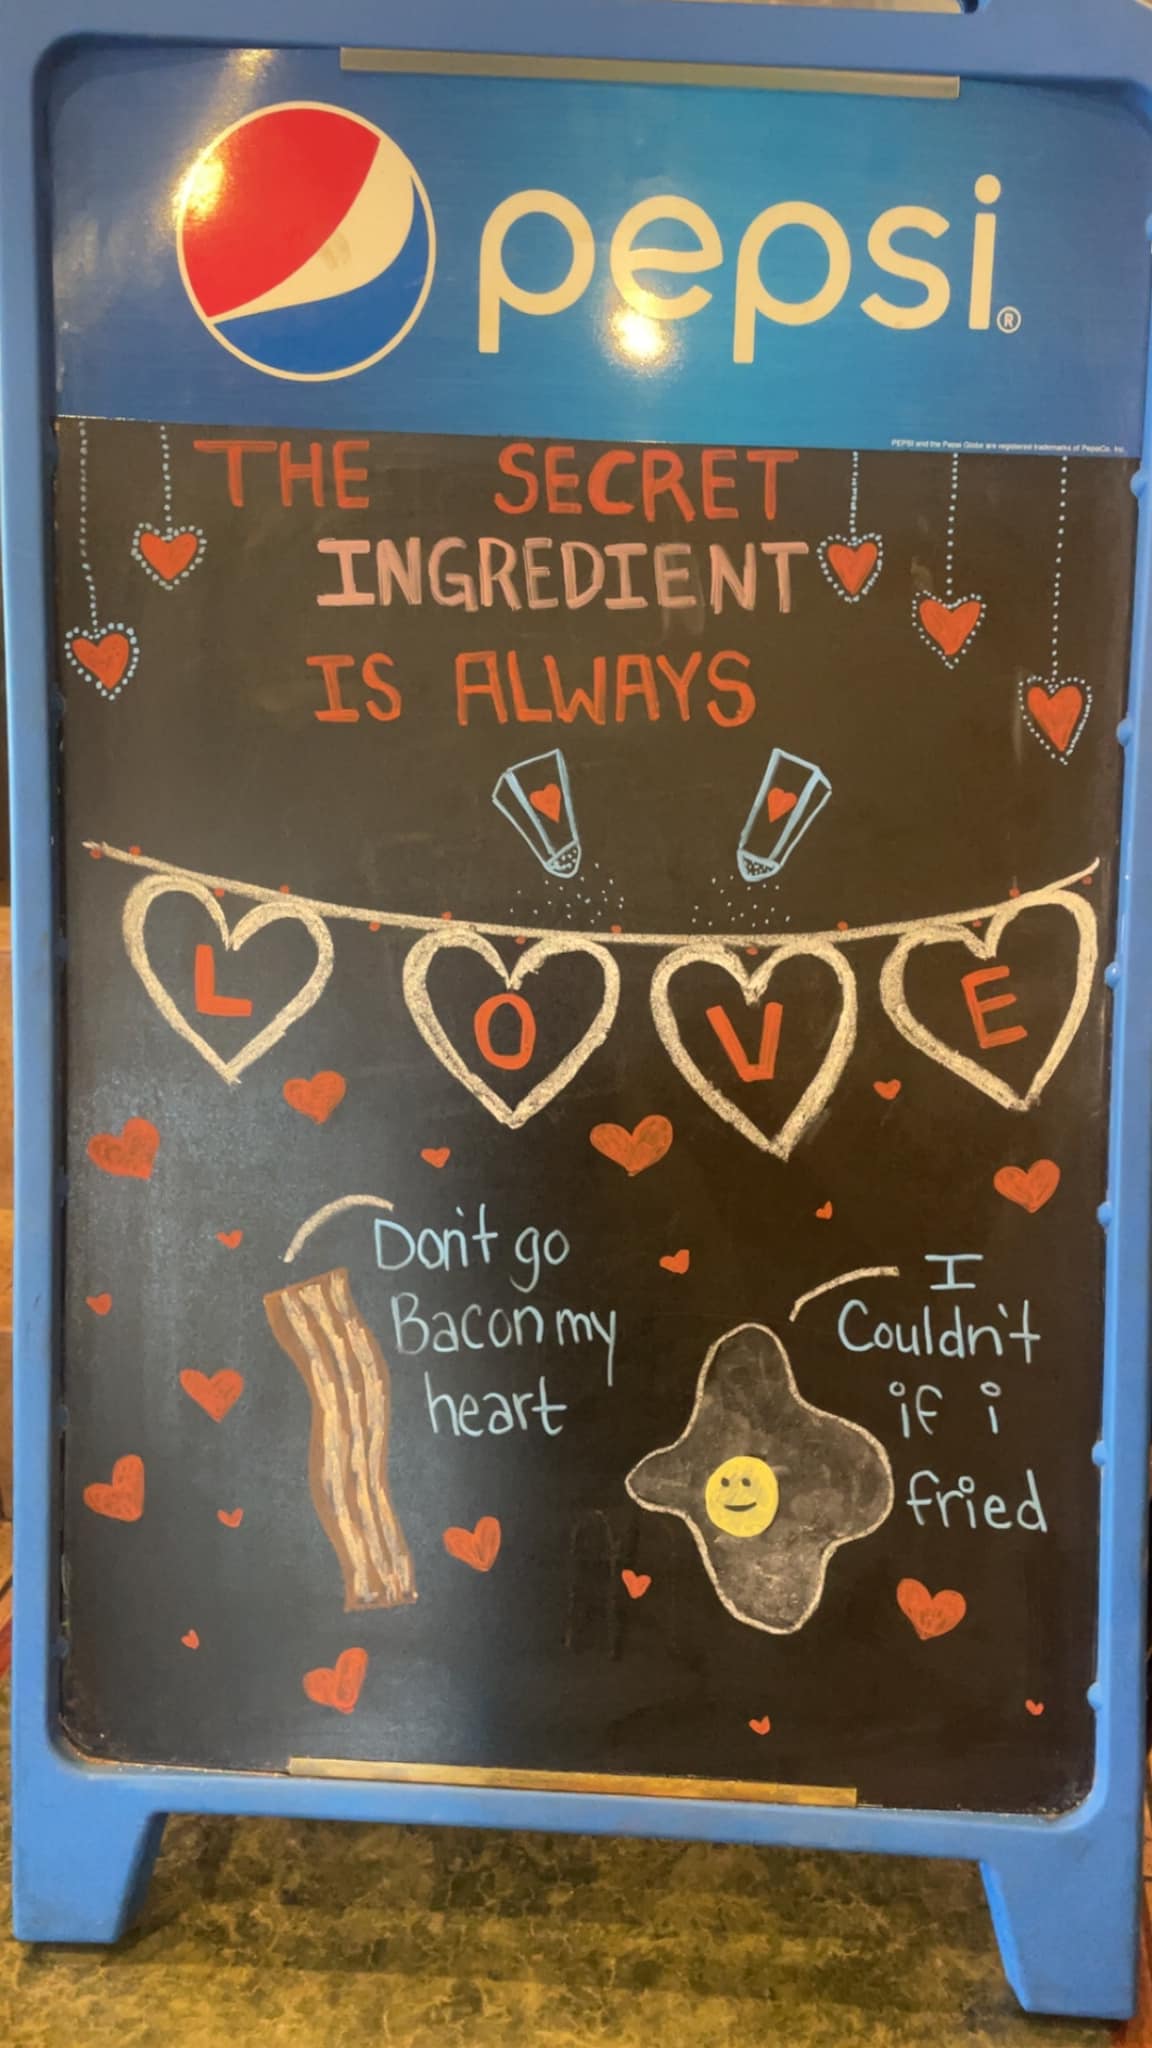 pepsi®
PEPSI and the Pepsi Globe are registered trademarks of PepsiCo, Inc.
THE SECRET
INGREDIENT
IS ALWAYS
L O V E
Don't go
Bacon my
heart
I
Couldn't
if i
fried